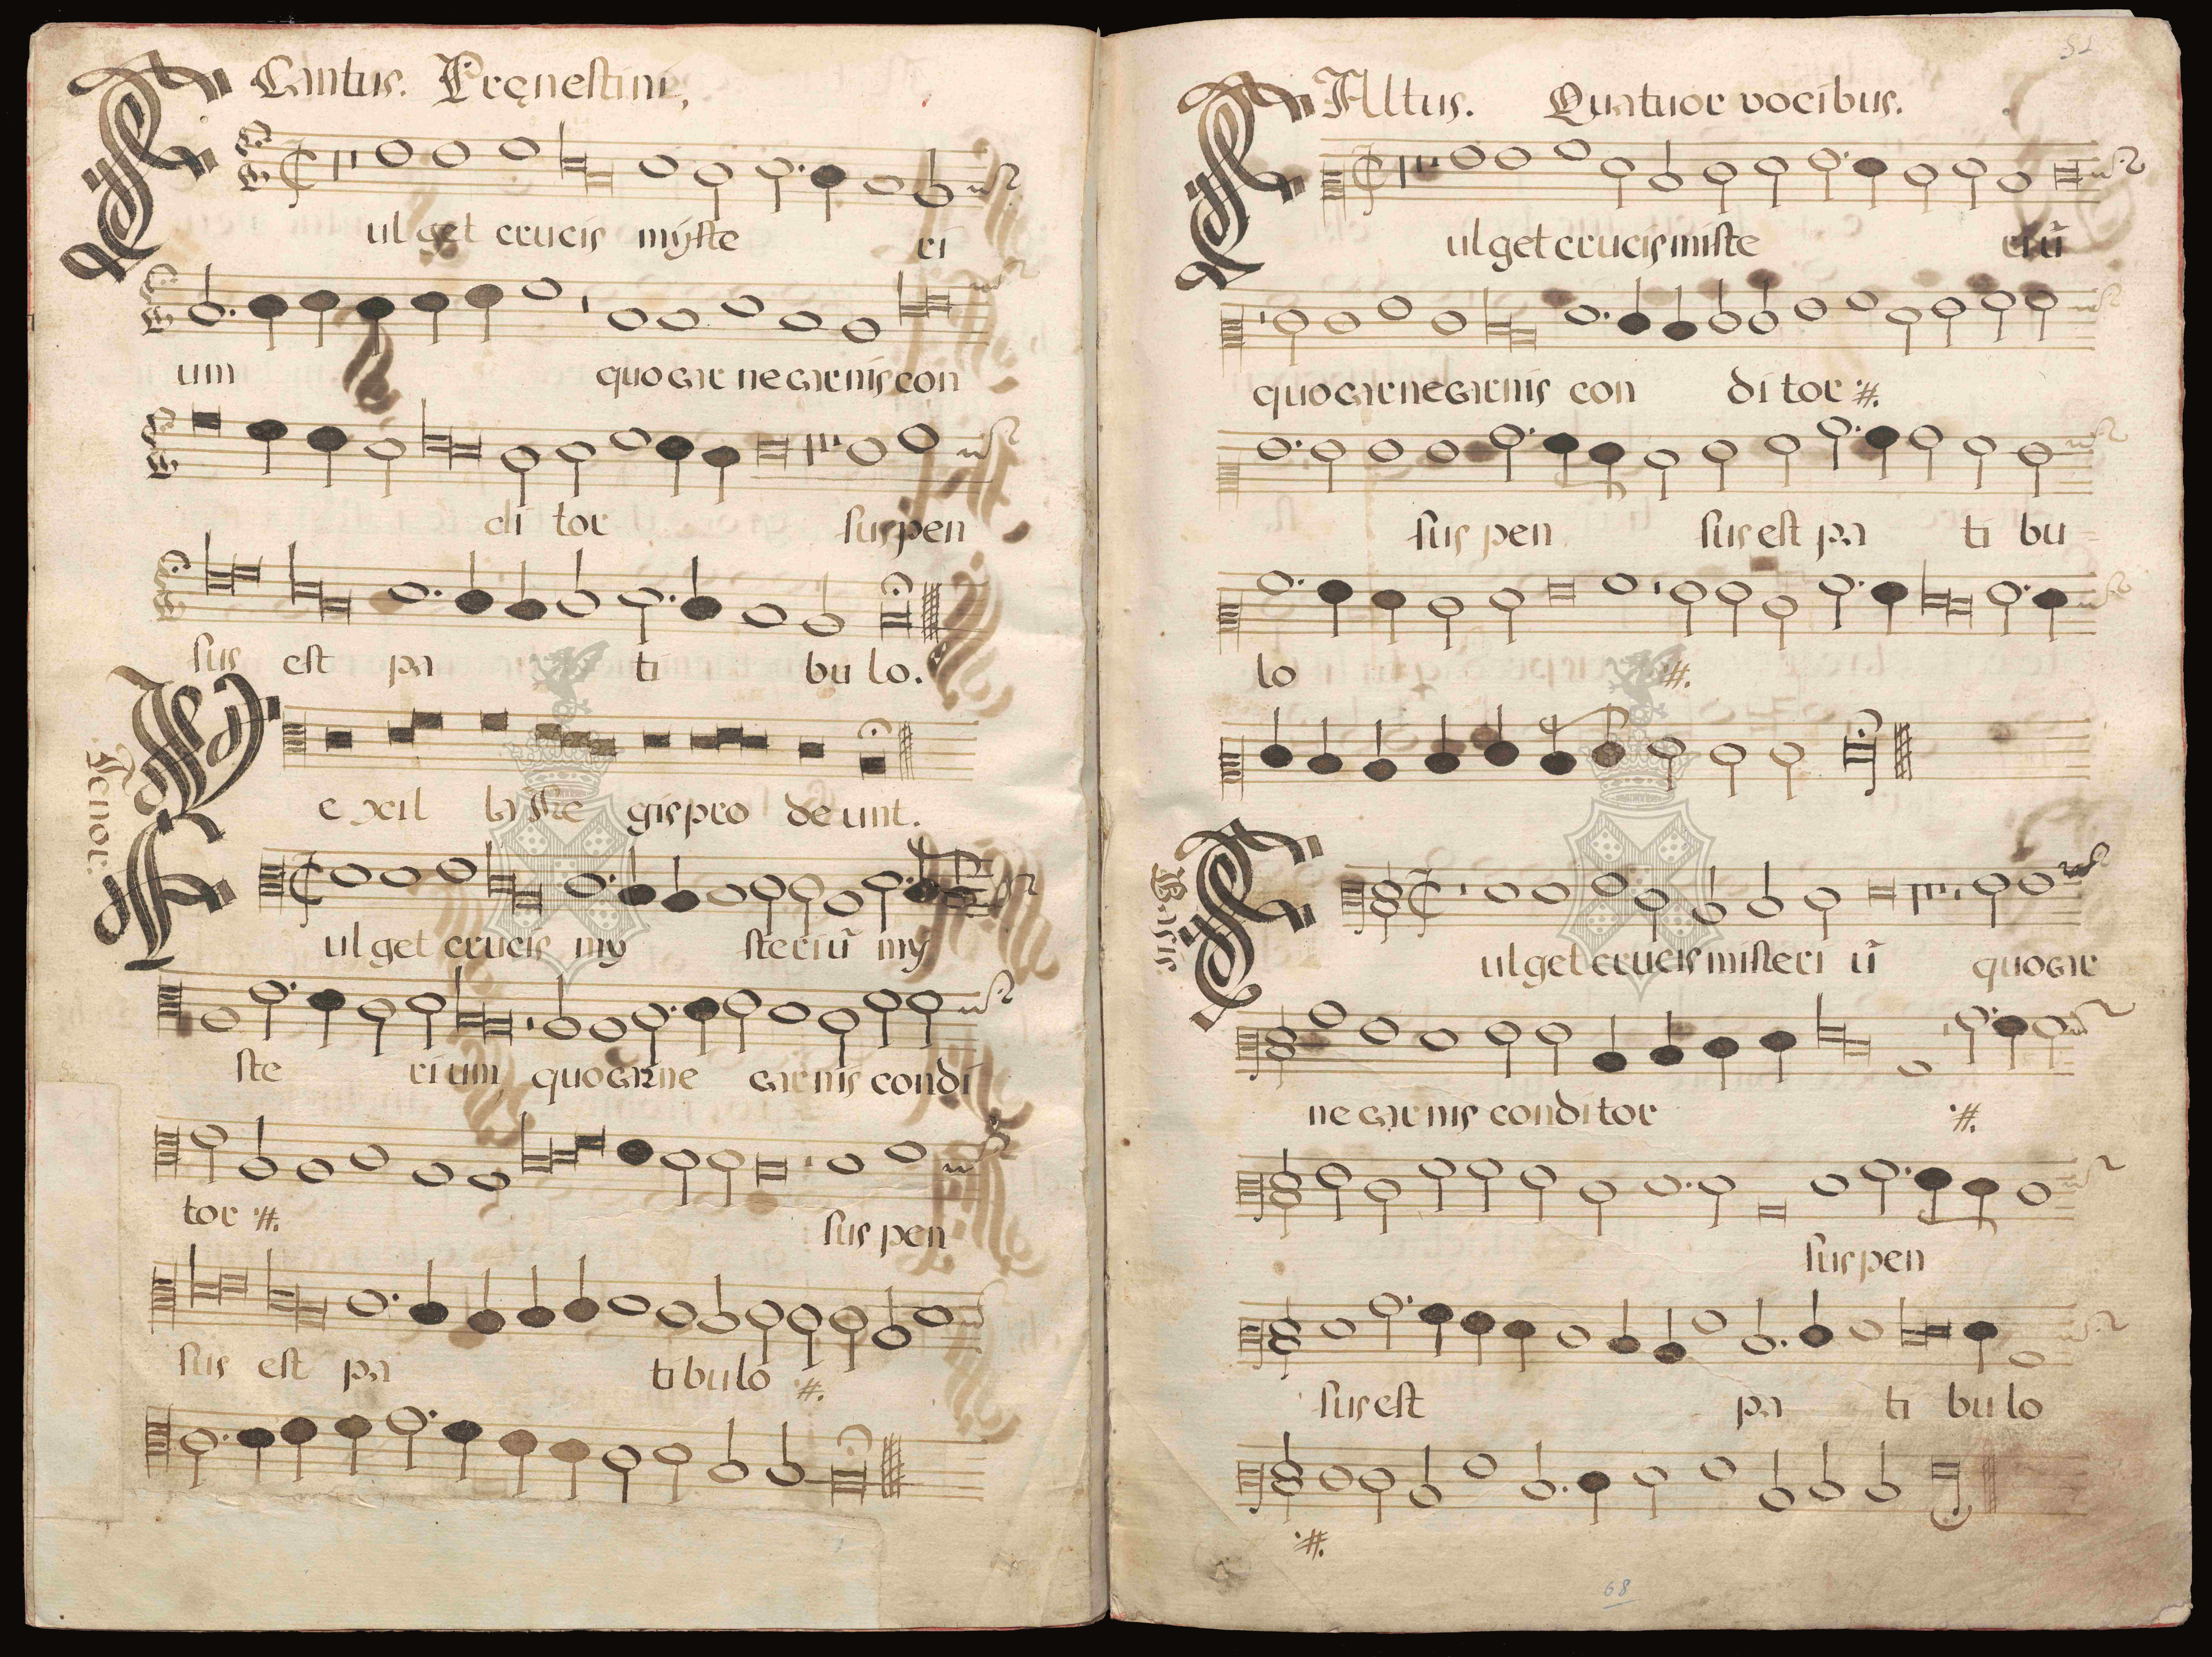 Cantus. Pręnestini.
ul get crucis mÿste ri
um quo car ne carnis con
di tor suspen
sus est pa ti bu lo.
Tenor.
e xil la Re gis pro de unt.
ul get crucis my steriũ my
ste ri um quo carne carnis condi
tor :#. sus pen
sus est pa ti bu lo :#.
52
Altus. Quatuor vocibus.
ul get crucis miste riũ
quo carne carnis con di tor :#.
sus pen sus est pa ti bu
lo :#.
Bassus.
ul get crucis misteri ũ quo car
ne carnis conditor :#.
suspen
sus est pa ti bu lo
:#.
68